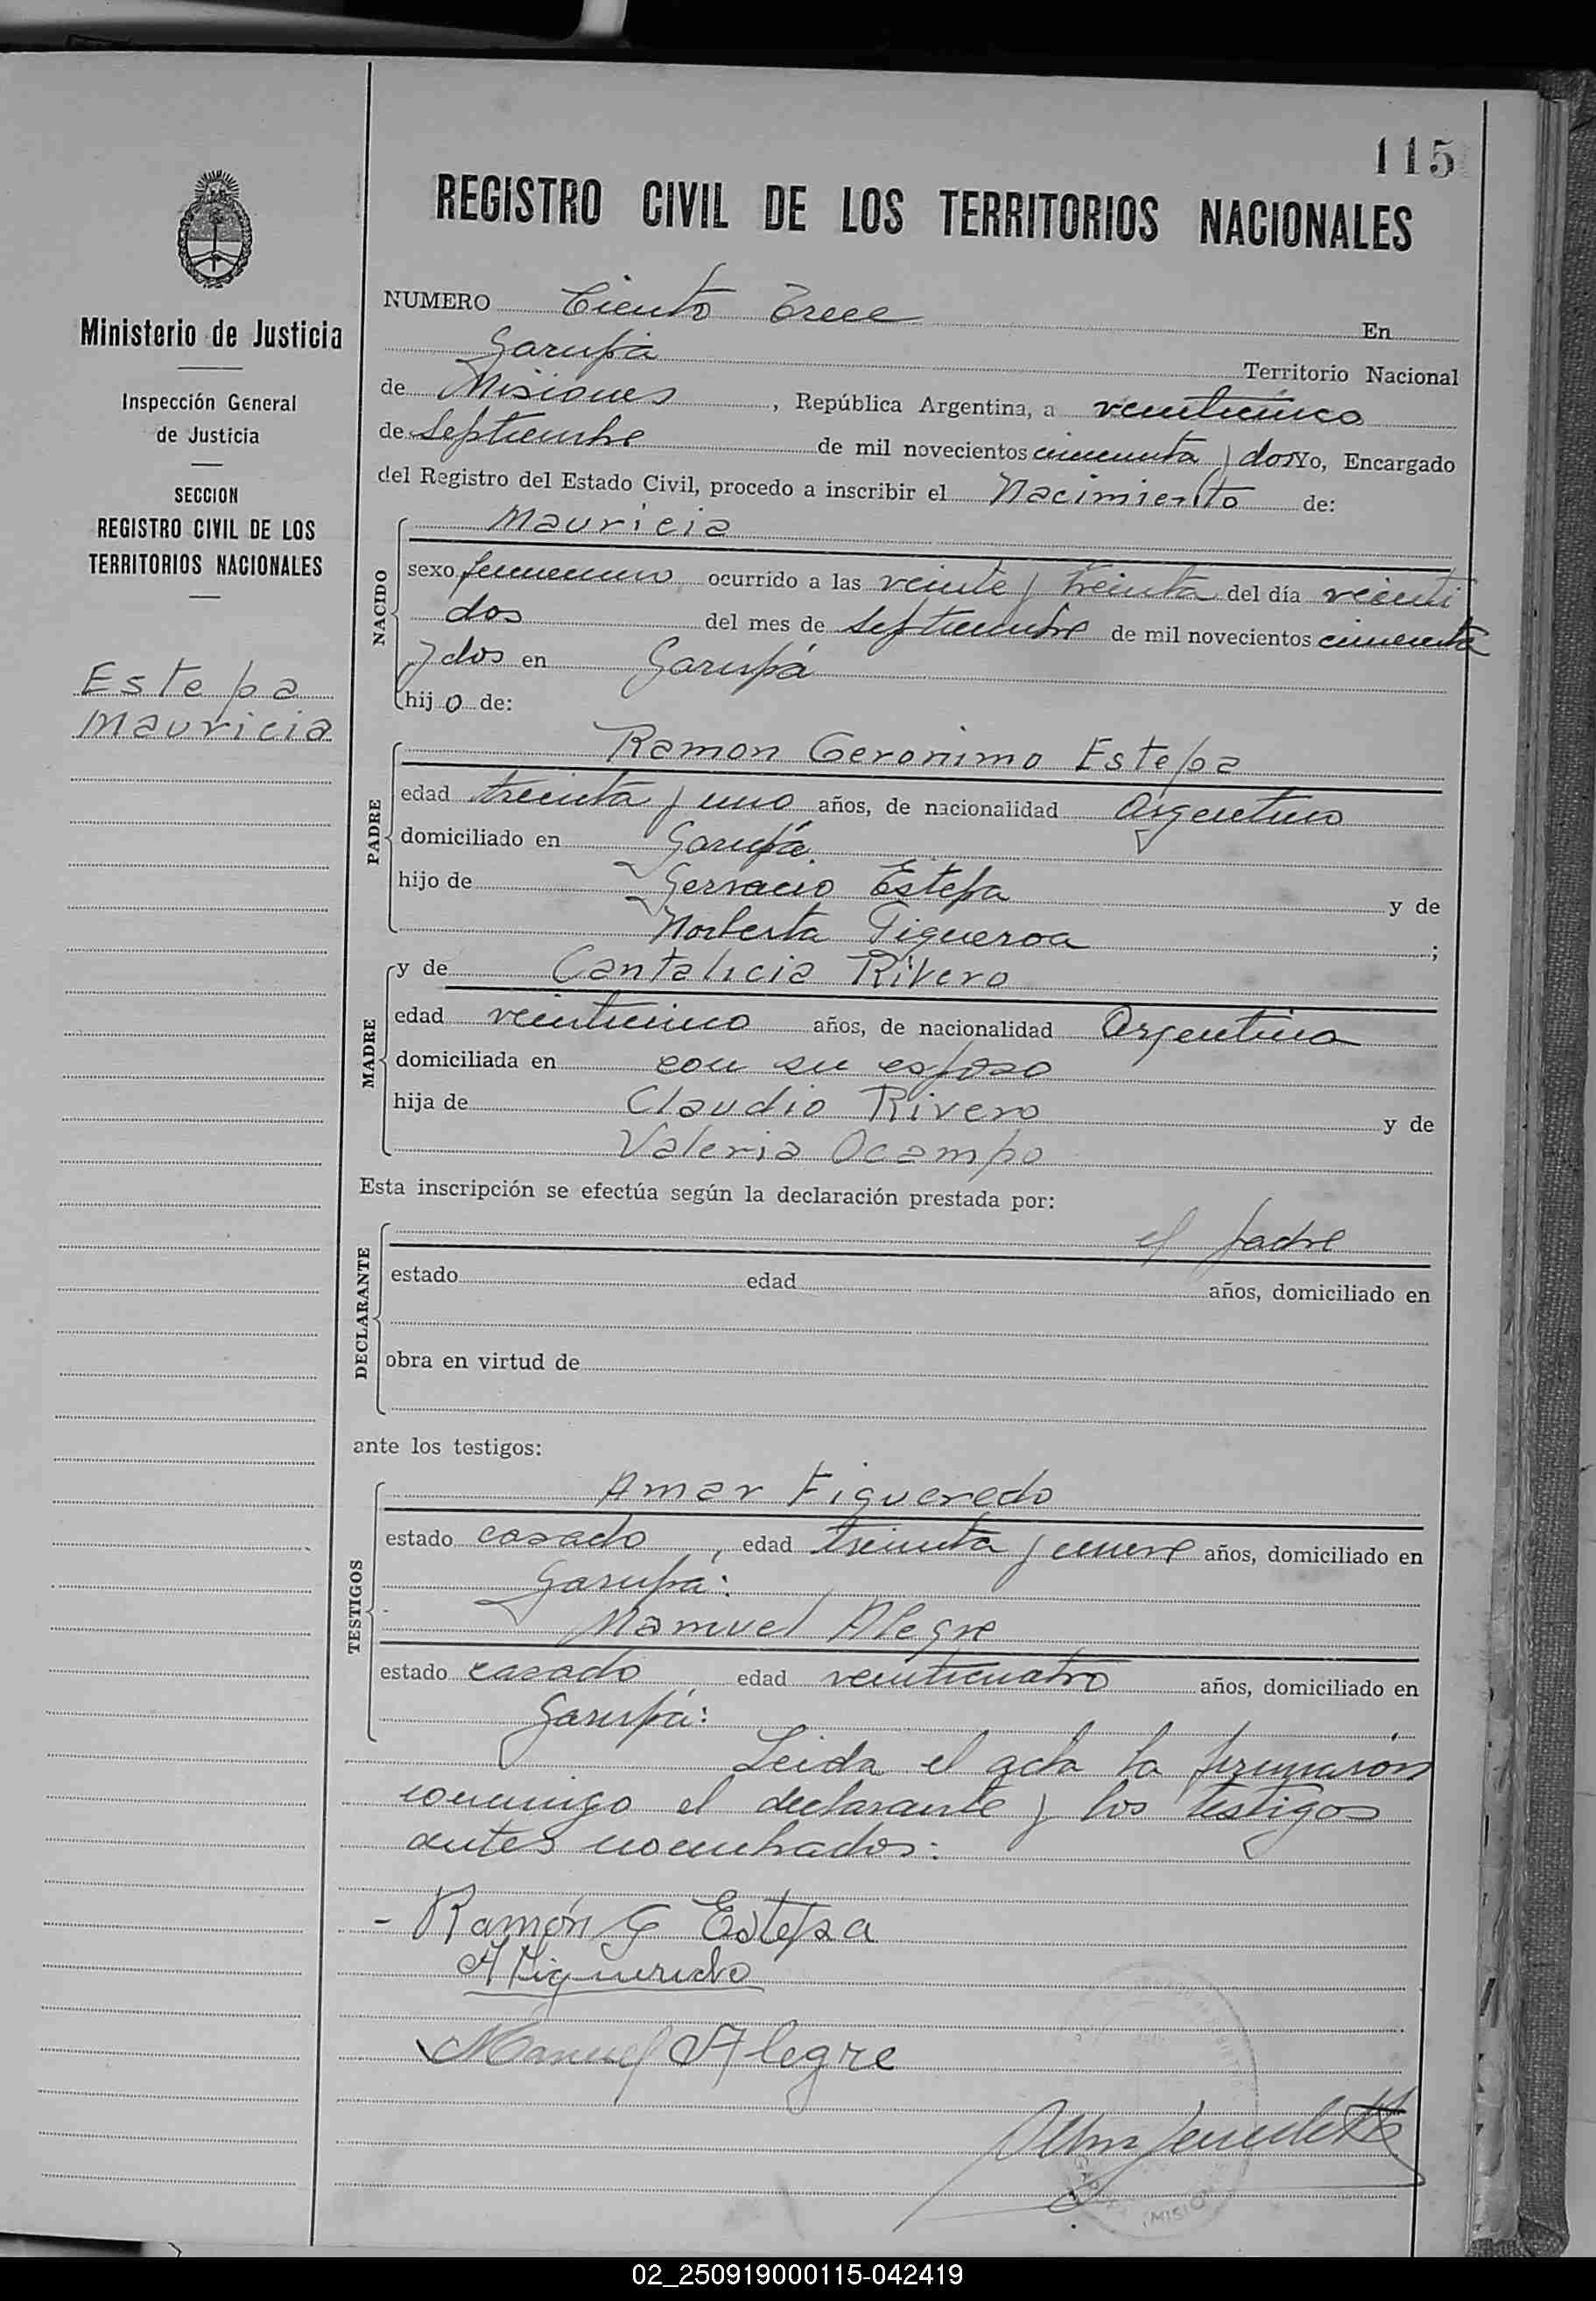 115
REGISTRO CIVIL DE LOS TERRITORIOS NACIONALES
Ministerio de Justicia
Inspección General
de Justicia
SECCION
REGISTRO CIVIL DE LOS
TERRITORIOS NACIONALES
Estepa
Mauricia
NUMERO Ciento Trece En
Garupá Territorio Nacional
de Misiones, República Argentina, a veinticinco
de Septiembre de mil novecientos cincuenta y dos Yo, Encargado
del Registro del Estado Civil, procedo a inscribir el Nacimiento de:
NACIDO
Mauricia
sexo femenino ocurrido a las veinte y treinta del día veinti
dos del mes de Septiembre de mil novecientos cincuenta
y dos en Garupá
hijo de:
PADRE
Ramon Geronimo Estepa
edad treinta y uno años, de nacionalidad Argentino
domiciliado en Garupá.
hijo de Gervacio Estepa y de
Norberta Figueroa;
MADRE
y de Cantalicia Rivero
edad veinticinco años, de nacionalidad Argentina
domiciliada en con su esposo
hija de Claudio Rivero y de
Valeria Ocampo
Esta inscripción se efectúa según la declaración prestada por:
DECLARANTE
el padre
estado edad años, domiciliado en
obra en virtud de
ante los testigos:
TESTIGOS
Amar Figueredo
estado casado, edad treinta y nueve años, domiciliado en
Garupá:
Manuel Alegre
estado casado, edad veinticuatro años, domiciliado en
Garupá:
Leida el acta la firmaron
conmigo el declarante y los testigos
antes nombrados:
- Ramón G Estepa
A Figueredo
Manuel Alegre
MISIONES
02_250919000115-042419